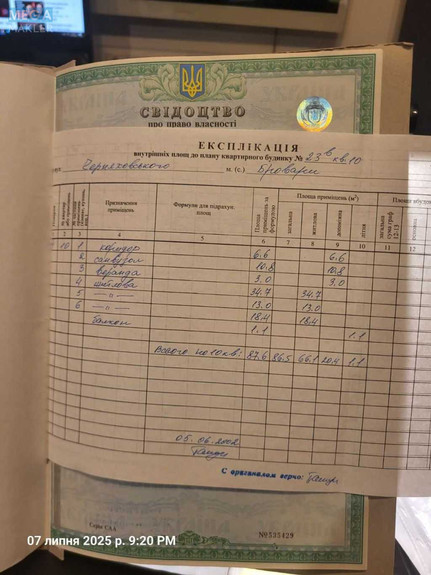 МЕГА
МАКЛЕР
СВІДОЦТВО
про право власності
ЕКСПЛІКАЦІЯ
внутрішніх площ до плану квартирного будинку № 23в кв. 10
Черняховского м. (с.) Бровари
Призначення приміщень
Формули для підрахун. площ
Площа приміщень за формулою
Площа приміщень (м²)
загальна житлова допоміжна літня
загальна сума граф 12-13
2 3 4 5 6 7 8 9 10 11 12
10 1 коридор 6.6 6.6
2 санвузол 10.8 10.8
3 веранда 3.0 3.0
4 житлова 34.7 34.7
5 —„— 13.0 13.0
6 —„— 18.4 18.4
балкон 1.1 1.1
Всього по 10 кв: 87.6 86.5 66.1 20.4 1.1
05.06.2002
З оригіналом вірно:
Серія САА №535429
07 липня 2025 р. 9:20 PM